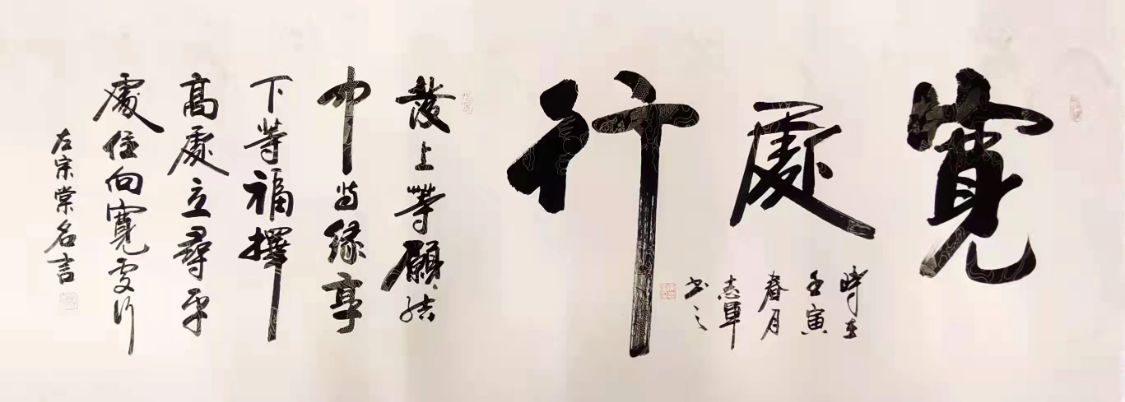 寬處行
時在
壬寅
春月
志軍
书之
發上等願结
中等缘享
下等福擇
高處立尋平
處住向寬處行
左宗棠名言